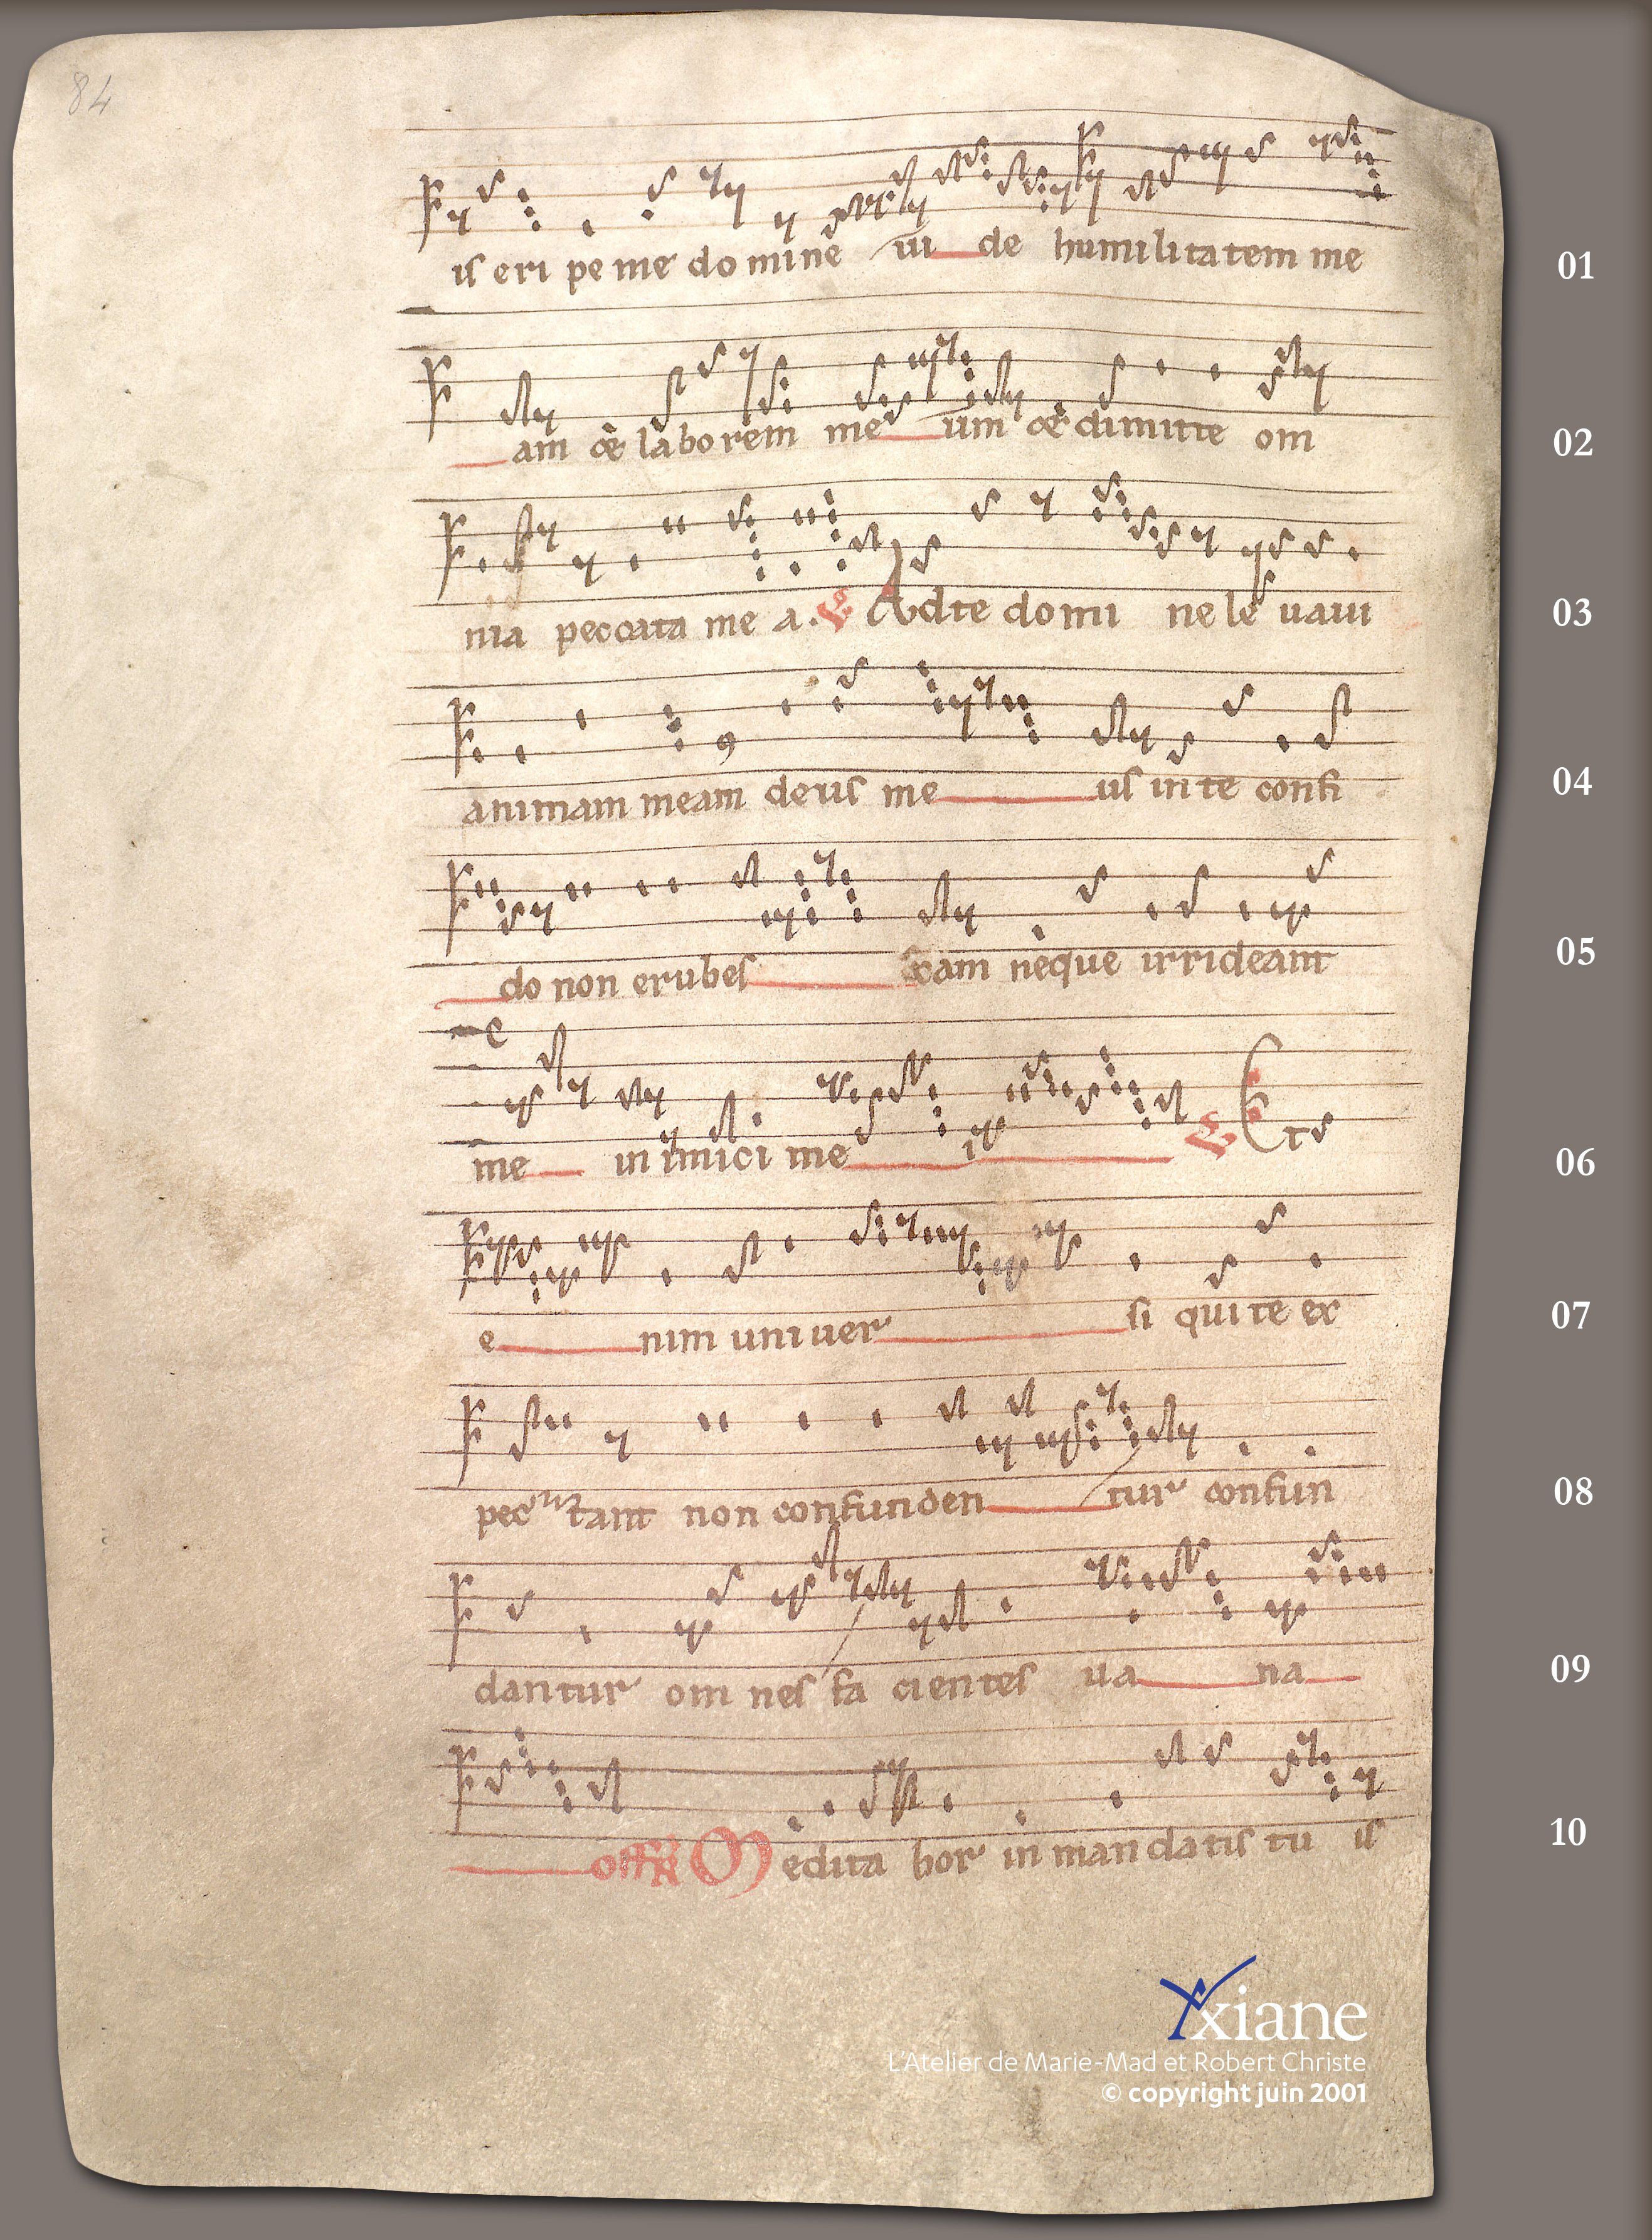 84
is eri pe me do mine ui de humilitatem me
01
am & laborem me um & dimitte om
02
nia peccata me a. ℣ Ad te domi ne le uaui
03
animam meam deus me us in te confi
04
do non erubes cam neque irrideant
05
me in imici me i ℣ Et
06
e nim uniuer si qui te ex
07
pec tant non confunden tur confun
08
dantur om nes fa cientes ua na
09
off Medita bor in mandatis tu is
10
Axiane
L'Atelier de Marie-Mad et Robert Christe
© copyright juin 2001